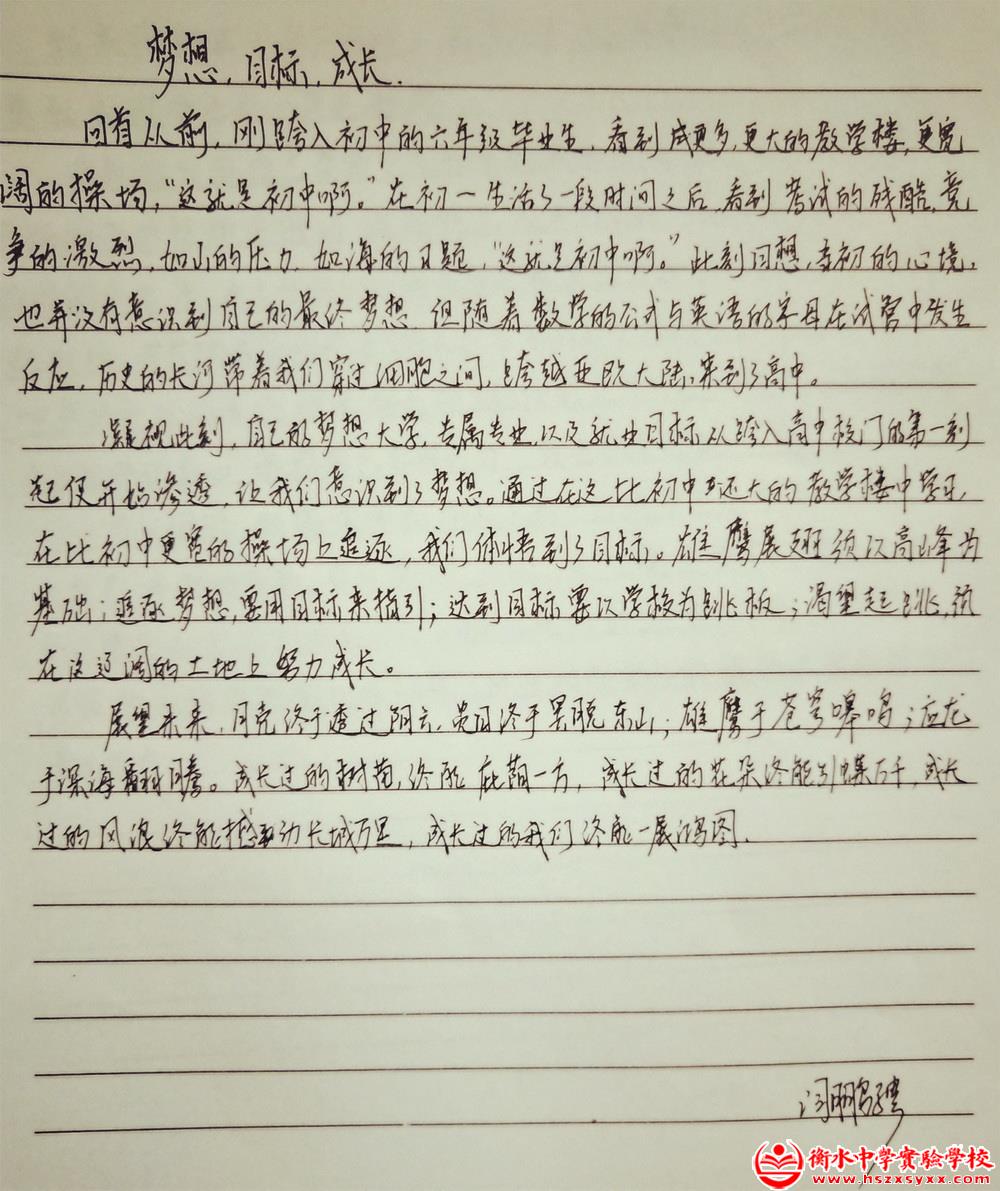 梦想,目标,成长.
回首从前,刚跨入初中的六年级毕业生,看到成更多,更大的教学楼,更宽
阔的操场,“这就是初中啊。”在初一生活了一段时间之后,看到考试的残酷,竞
争的激烈,如山的压力,如海的习题,“这就是初中啊。”此刻回想,当初的心境,
也并没有意识到自己的最终梦想,但随着数学的公式与英语的字母在试管中发生
反应,历史的长河带着我们穿过细胞之间,跨越亚欧大陆,来到了高中。
凝视此刻,自己的梦想大学,专属专业,以及就业目标从跨入高中校门的第一刻
起便开始渗透,让我们意识到了梦想。通过在这比初中还大的教学楼中学习,
在比初中更宽的操场上追逐,我们体悟到了目标。雄鹰展翅须以高山峰为
基础;追逐梦想,要用目标来指引;达到目标要以学校为跳板;渴望起跳,须
在这辽阔的土地上努力成长。
展望未来,月亮终于透过阴云,贵日终于果脱东山;雄鹰于苍穹嗥鸣;应龙
于深海翻腾。成长过的树苗,终能庇荫一方,成长过的花朵终能引蝶万千,成长
过的风浪终能撼动长城万里,成长过的我们终能一展鸿图.
闫鹏骋
衡水中学實驗學校
www.hszxsyxx.com